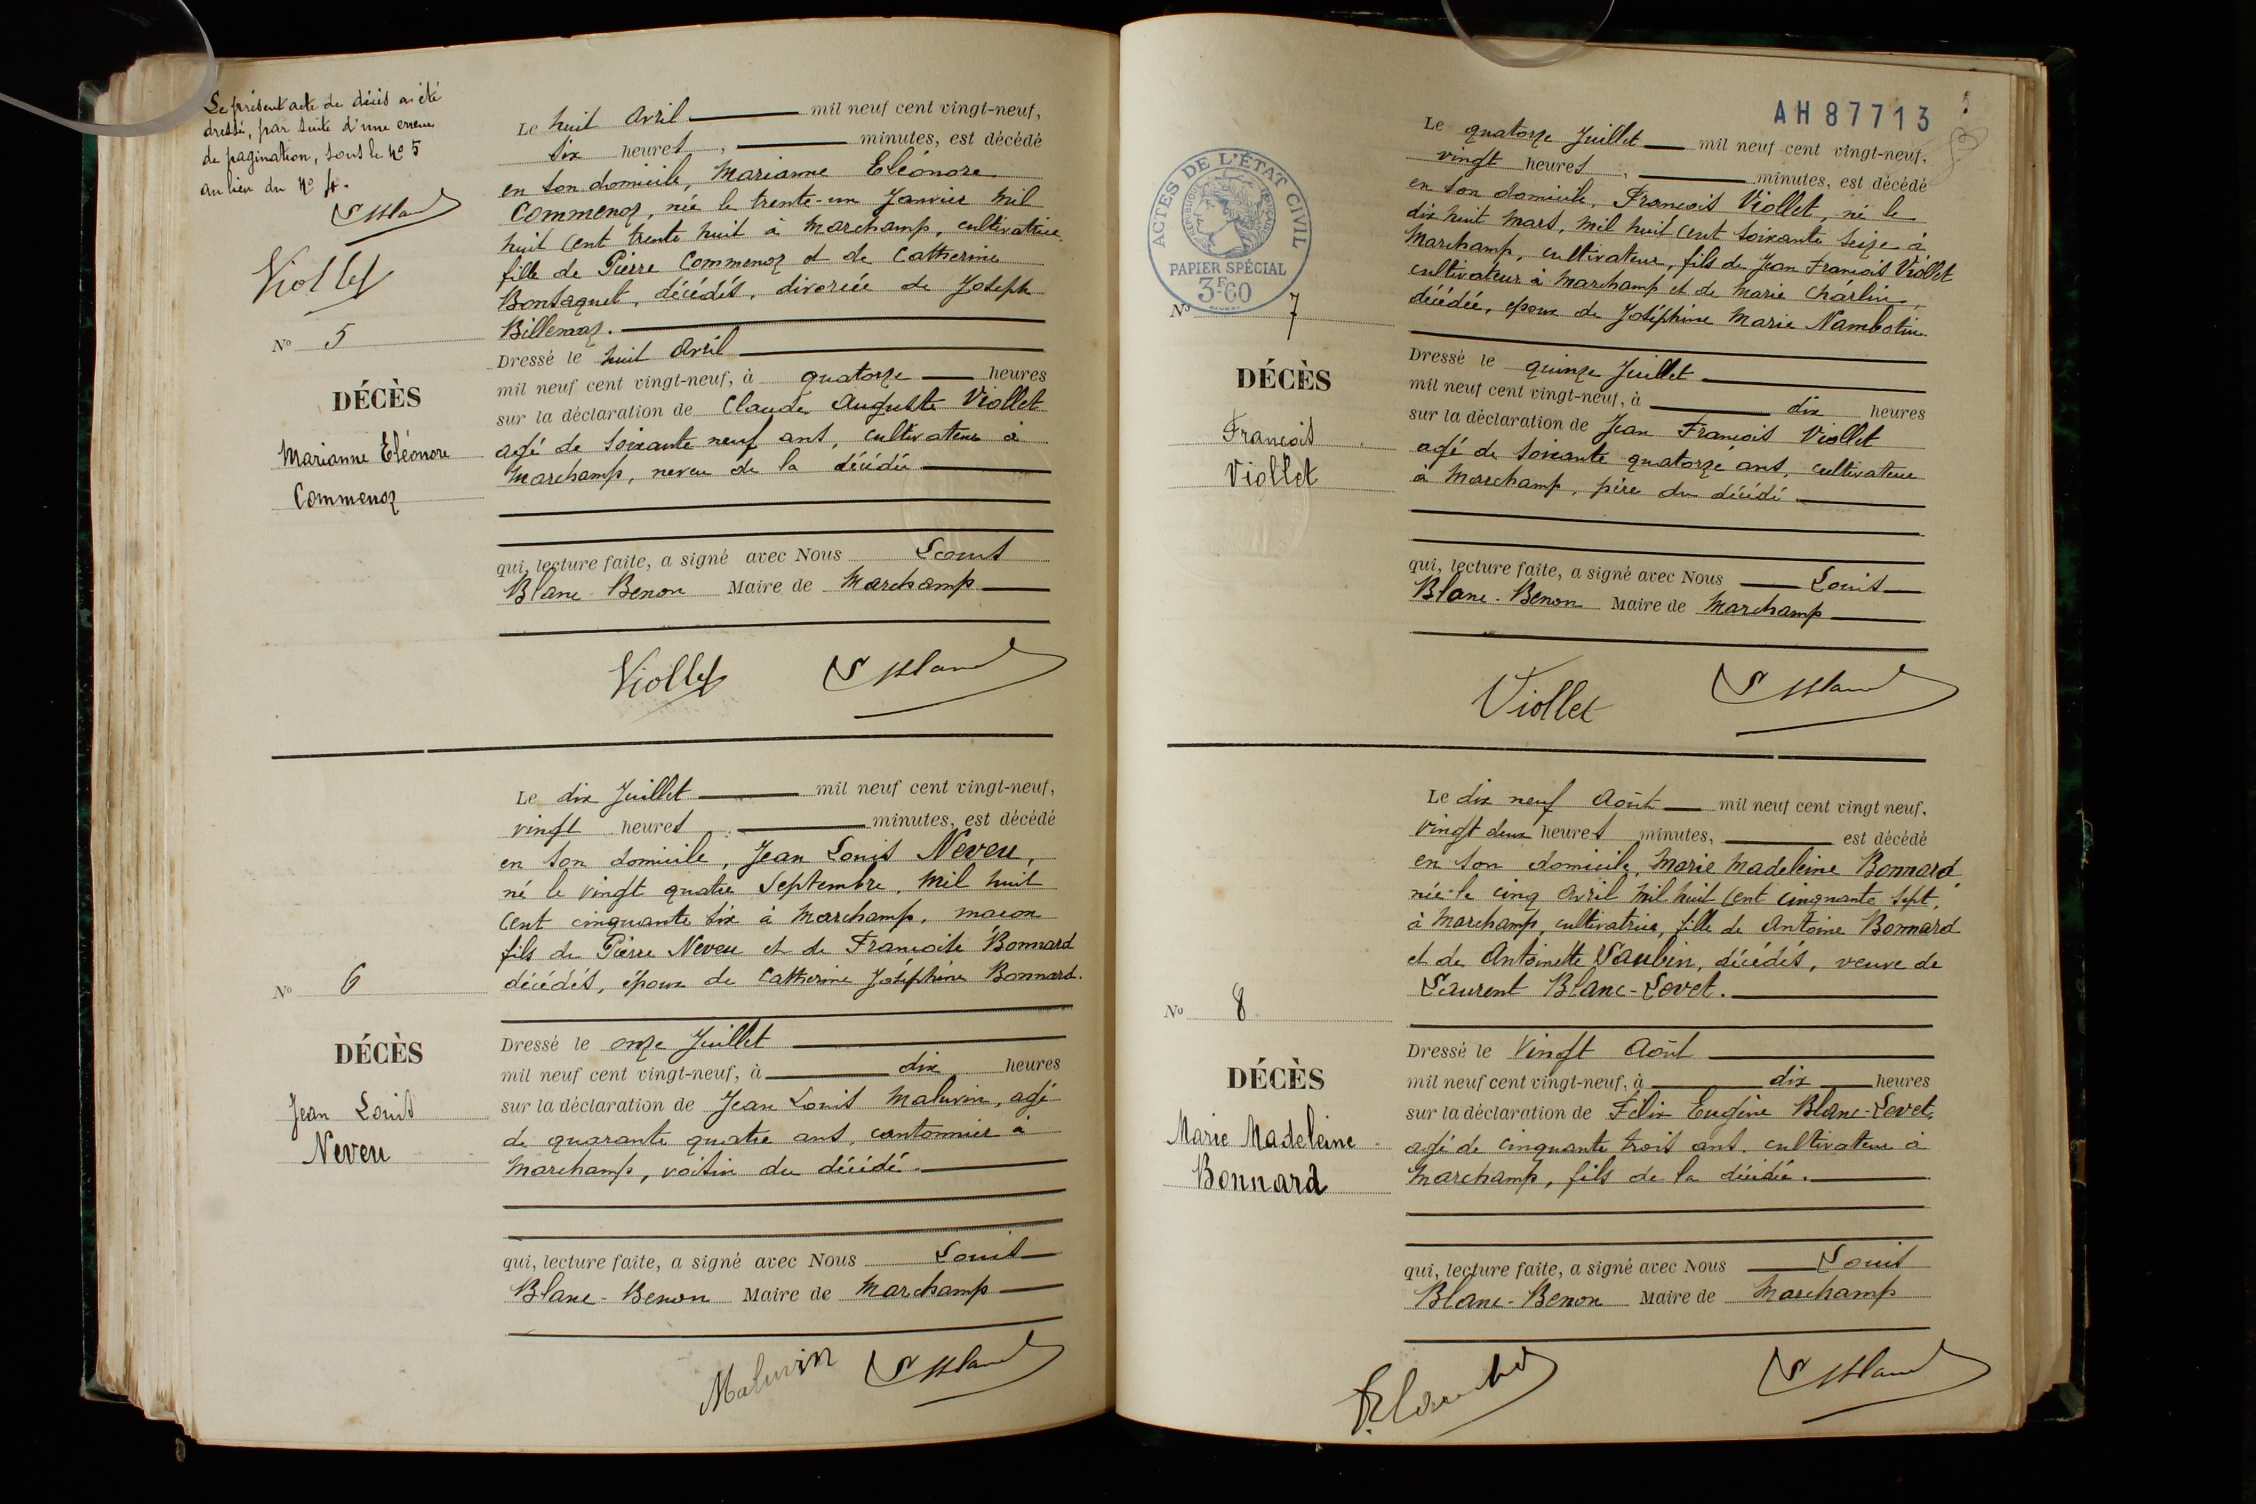 Le présent acte de décès a été
dressé, par suite d'une erreur
de pagination, sous le No 5
au lieu du No 4.
Viollet
No 5
DÉCÈS
Marianne Eléonore
Commenoz
Le huit Avril mil neuf cent vingt-neuf,
six heures, minutes, est décédé
en son domicile, Marianne Eléonore
Commenoz, née le trente-un Janvier mil
huit cent trente huit à Marchamp, cultivatrice,
fille de Pierre Commenoz et de Catherine
décédés, divorcée de Joseph
Billemaz.
Dressé le huit Avril
mil neuf cent vingt-neuf, à quatorze heures
sur la déclaration de Claude Auguste Viollet
agé de soixante neuf ans, cultivateur à
Marchamp, neveu de la décédée
qui, lecture faite, a signé avec Nous Louis
Blanc-Benon Maire de Marchamp
Viollet
No 6
DÉCÈS
Jean Louis
Neveu
Le dix Juillet mil neuf cent vingt-neuf,
vingt heures, minutes, est décédé
en son domicile, Jean Louis Neveu,
né le vingt quatre Septembre, mil huit
cent cinquante six à Marchamp, macon
fils de Pierre Neveu et de Francoise Bonnard
décédés, époux de Catherine Joséphine Bonnard.
Dressé le onze Juillet
mil neuf cent vingt-neuf, à dix heures
sur la déclaration de Jean Louis Maluvin, agé
de quarante quatre ans, cantonnier à
Marchamp, voisin du décédé.
qui, lecture faite, a signé avec Nous Louis
Blanc-Benon Maire de Marchamp
Maluvin
AH 87713
ACTES DE L'ÉTAT CIVIL
RÉPUBLIQUE FRANÇAISE
PAPIER SPÉCIAL
3F60
No 7
DÉCÈS
Francois
Viollet
Le quatorze Juillet mil neuf cent vingt-neuf,
vingt heures, minutes, est décédé
en son domicile, Francois Viollet, né le
dix huit Mars, mil huit cent soixante seize à
Marchamp, cultivateur, fils de Jean Francois Viollet
cultivateur à Marchamp et de Marie Charlin,
décédée, époux de Joséphine Marie Nambotin.
Dressé le quinze Juillet
mil neuf cent vingt-neuf, à dix heures
sur la déclaration de Jean Francois Viollet
agé de soixante quatorze ans, cultivateur
à Marchamp, père du décédé
qui, lecture faite, a signé avec Nous Louis
Blanc-Benon Maire de Marchamp
Viollet
No 8
DÉCÈS
Marie Madeleine
Bonnard
Le dix neuf Août mil neuf cent vingt neuf,
vingt deux heures minutes, est décédé
en son domicile, Marie Madeleine Bonnard
née le cinq Avril mil huit cent cinquante sept,
à Marchamp, cultivatrice, fille de Antoine Bonnard
et de Antoinette Saubin, décédés, veuve de
Laurent Blanc-Lovet.
Dressé le vingt Août
mil neuf cent vingt-neuf, à dix heures
sur la déclaration de Félix Eugène Blanc-Lovet,
agé de cinquante trois ans, cultivateur à
Marchamp, fils de la décédée.
qui, lecture faite, a signé avec Nous Louis
Blanc-Benon Maire de Marchamp